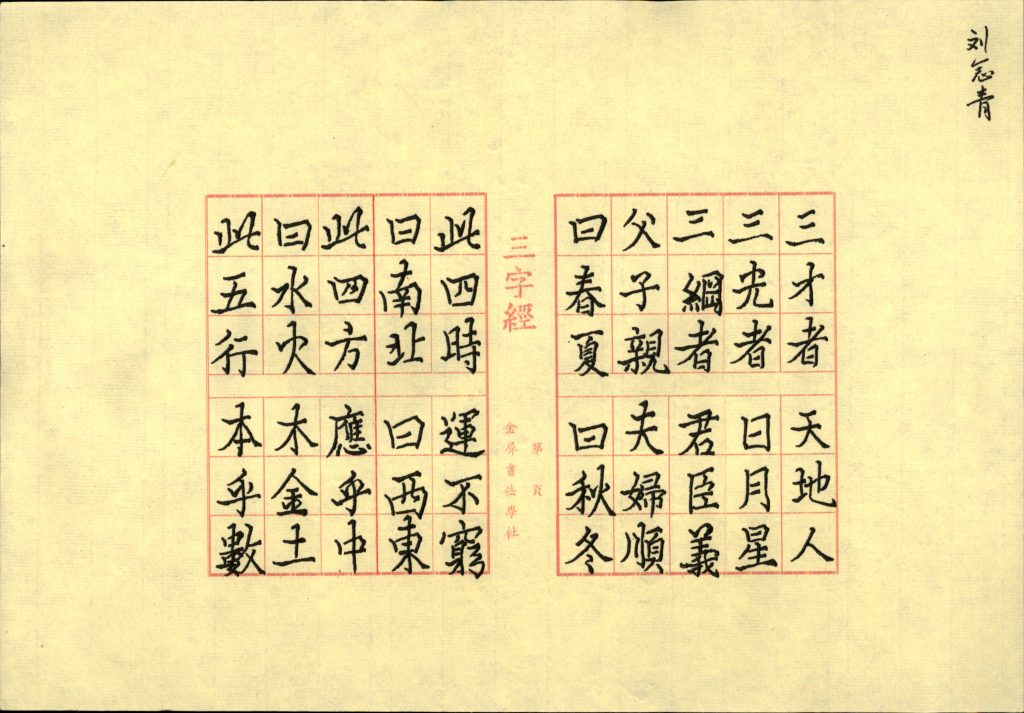 刘念青
三才者天地人
三光者日月星
三綱者君臣義
父子親夫婦順
曰春夏曰秋冬
三字經
第頁
金屏書法學社
此四時運不窮
曰南北曰西東
此四方應乎中
曰水火木金土
此五行本乎數